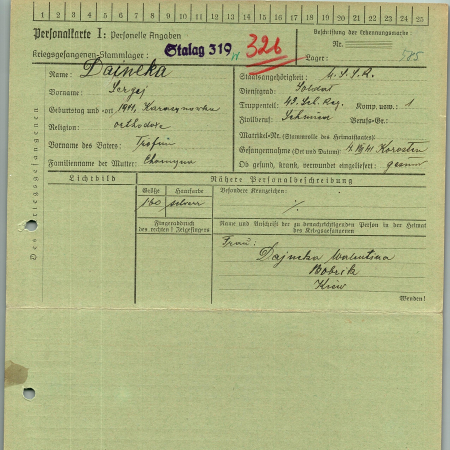 1 2 3 4 5 6 7 8 9 10 11 12 13 14 15 16 17 18 19 20 21 22 23 24 25
Personalkarte I: Personelle Angaben
Kriegsgefangenen-Stammlager: Stalag 319 326
Beschriftung der Erkennungsmarke
Nr.
Lager:
Des Kriegsgefangenen
Name: Dajneka
Vorname: Sergej
Geburtstag und -ort 1911,
Religion: orthodoxe
Vorname des Vaters: Trofim
Familienname der Mutter:
Staatsangehörigkeit: U.S.S.R.
Dienstgrad: Soldat
Truppenteil: 43. Sch. Reg. Komp. usw.: 1
Zivilberuf: Schmied Berufs-Gr.:
Matrikel-Nr. (Stammrolle des Heimatstaates):
Gefangennahme (Ort und Datum): Korosten
Ob gesund, krank, verwundet eingeliefert: gesund
Lichtbild
Nähere Personalbeschreibung
Größe Haarfarbe
160 schwarz
Besondere Kennzeichen:
Fingerabdruck
des rechten! Zeigefingers
Name und Anschrift der zu benachrichtigenden Person in der Heimat
des Kriegsgefangenen
Frau:
Dajneka Walentina
Bobrik
Kiew
Wenden!